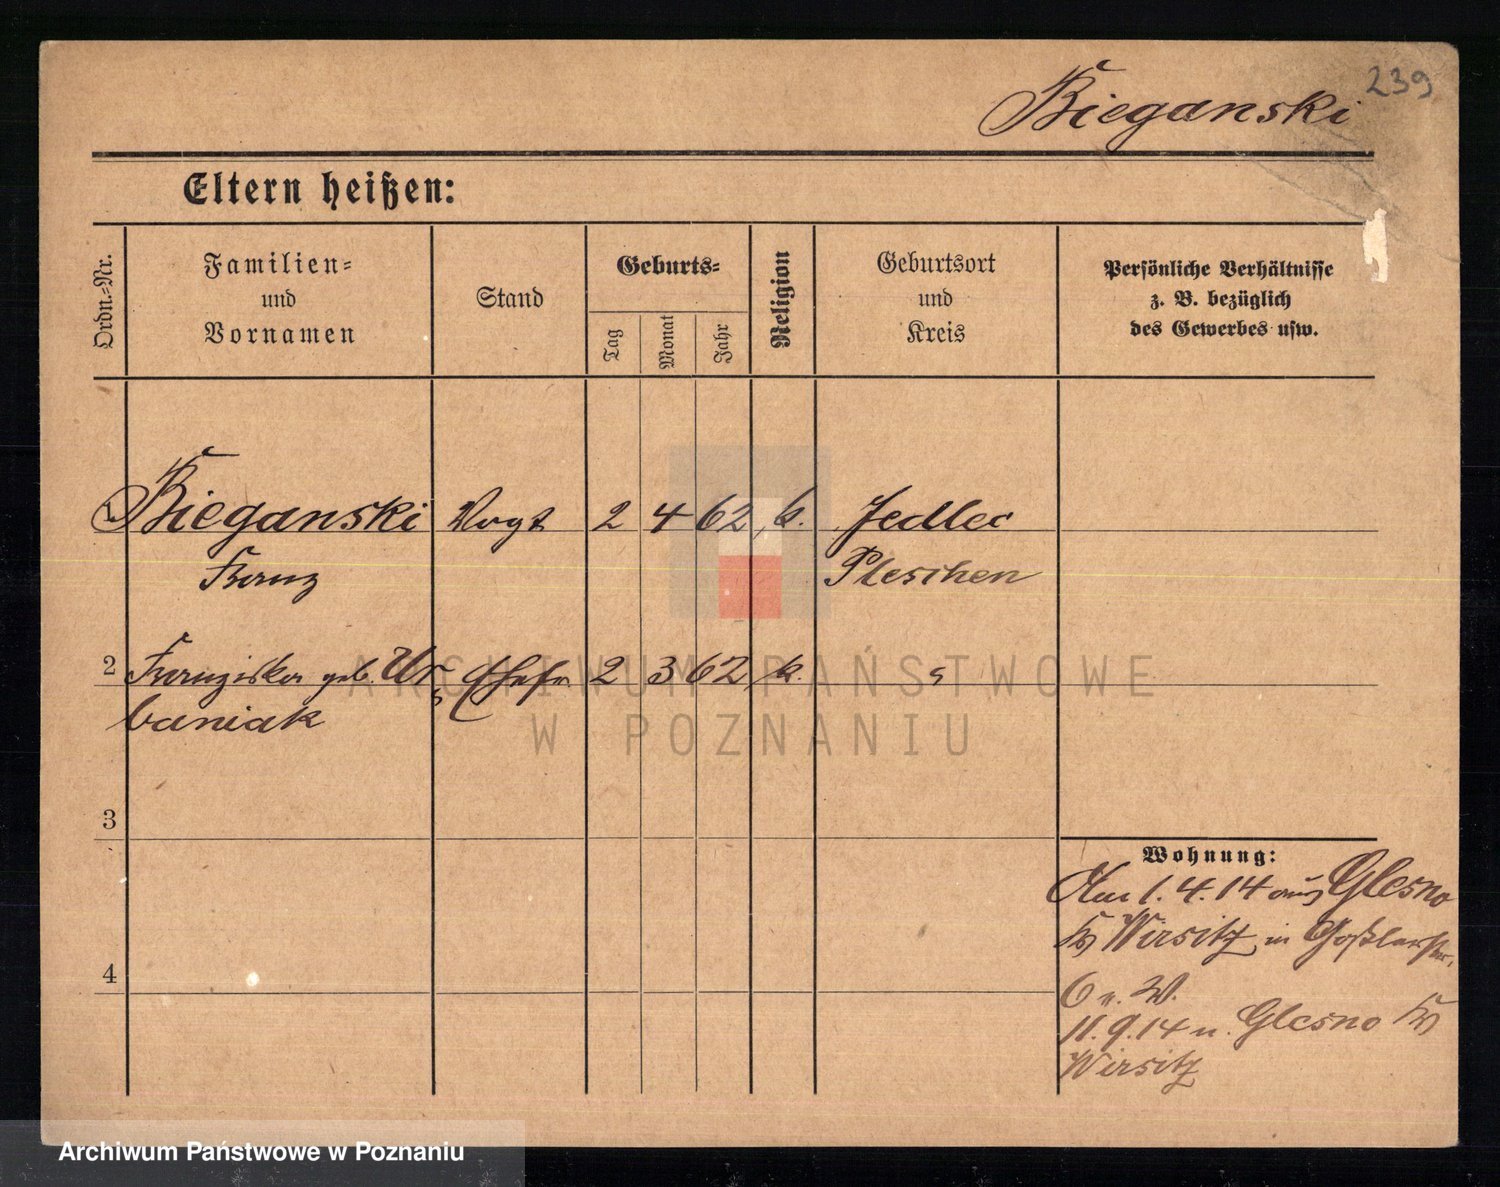 239
Bieganski
Eltern heißen:
Ordn.-Nr.
Familien-
und
Vornamen
Stand
Geburts-
Tag
Monat
Jahr
Religion
Geburtsort
und
Kreis
Persönliche Verhältnisse
z. B. bezüglich
des Gewerbes usw.
1 Bieganski Vogt 2 4 62 k. Jedlec
Franz Pleschen
2 Franziska geb. Ur Ehefr. 2 3 62 k. "
baniak
3
4
Wohnung:
Am 1.4.14 aus Glesno
Kr Wirsitz in Goßlerstr.
6 v. W.
11.9.14 n. Glesno Kr
Wirsitz
ARCHIWUM PAŃSTWOWE
W POZNANIU
Archiwum Państwowe w Poznaniu